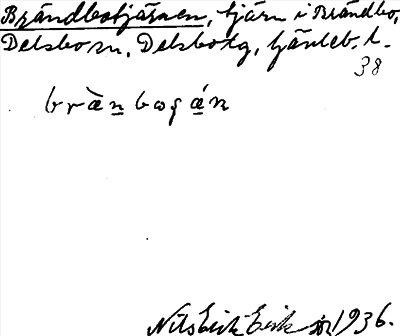 Brändbotjärnen, tjärn i Brändbo,
Delsbo sn, Delsbo tg, Gävleb. l.
38
brä̀n bos̨ ä́n
Nils Erik Erik 1936.